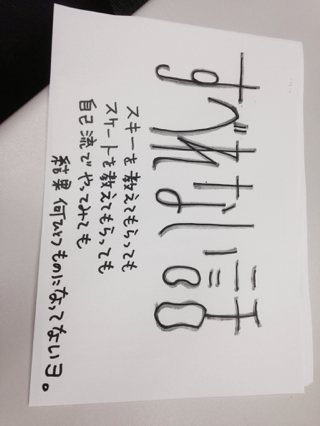 すべれない話
スキーを教えてもらっても
スケートを教えてもらっても
自己流でやってみても
結果何ひとつものになってないヨ。